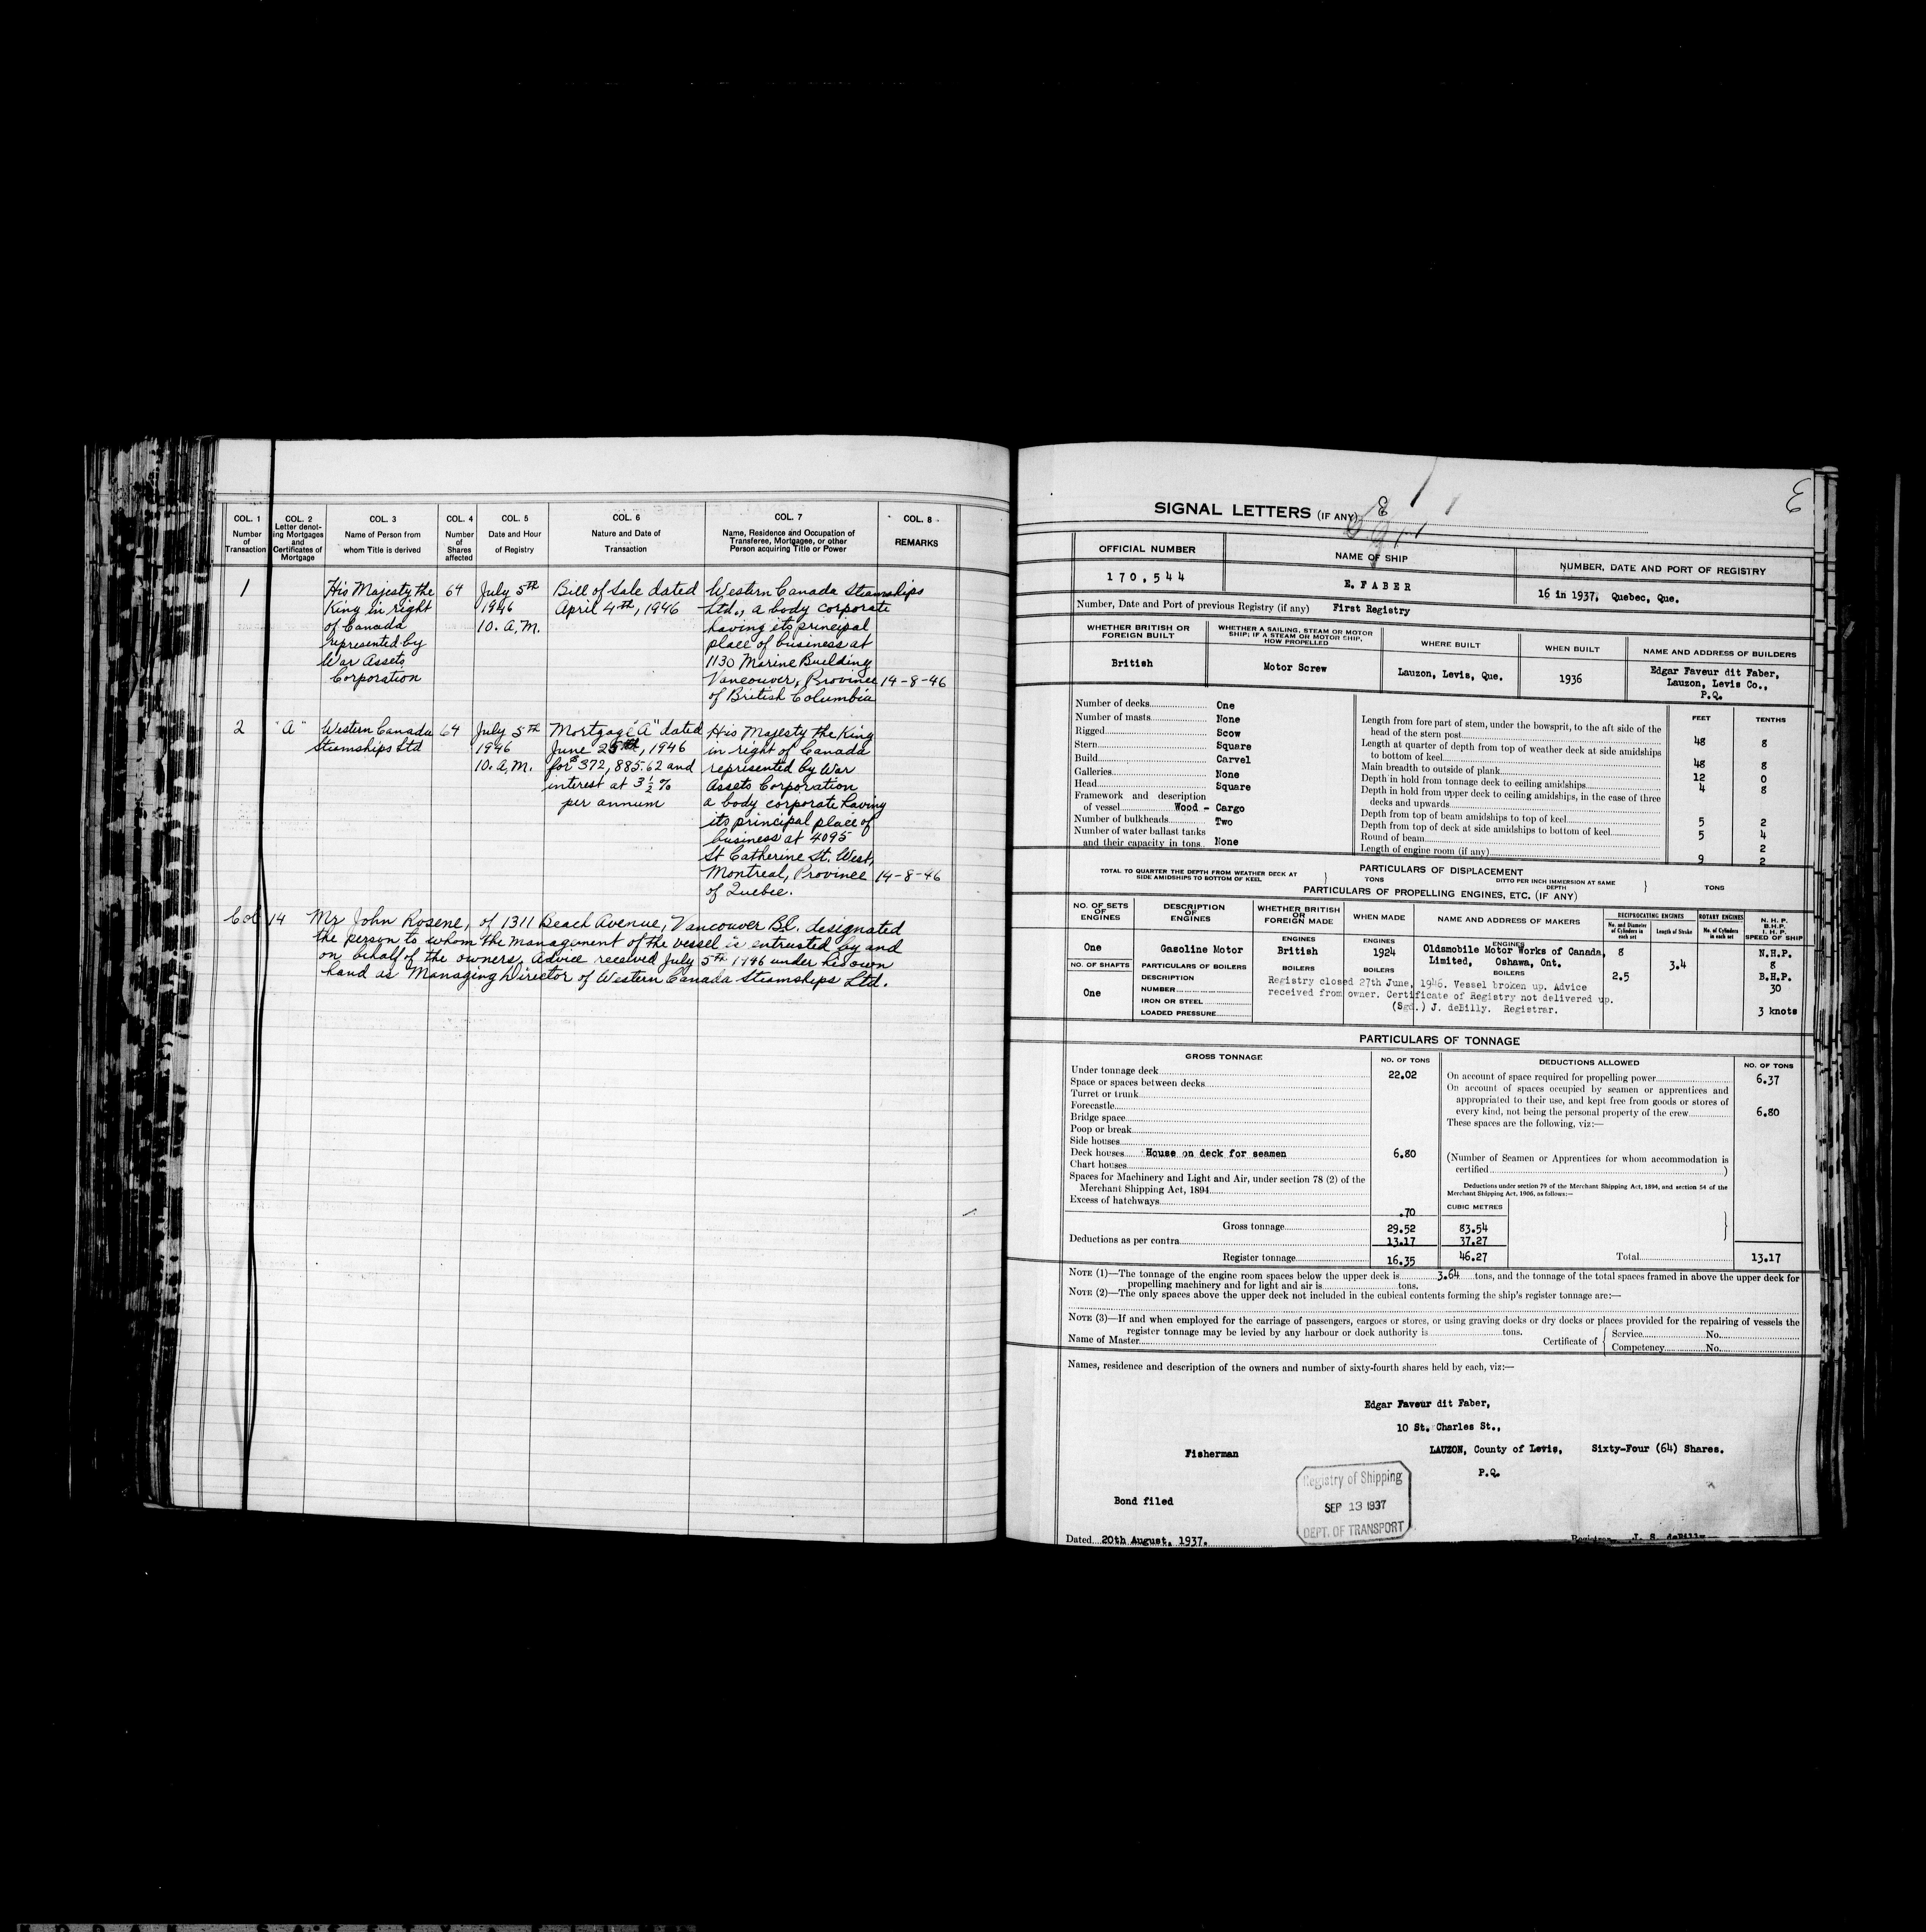 COL. 1
Number
of
Transaction
COL. 2
Letter denot-
ing Mortgages
and
Certificates of
Mortgage
COL. 3
Name of Person from
whom Title is derived
COL. 4
Number
of
Shares
affected
COL. 5
Date and Hour
of Registry
COL. 6
Nature and Date of
Transaction
COL. 7
Name, Residence and Occupation of
Transferee, Mortgagee, or other
Person acquiring Title or Power
COL. 8
REMARKS
1
His Majesty the
King in right
of Canada
represented by
War Assets
Corporation
64
July 5th
1946
10. A.M.
Bill of Sale dated
April 4th, 1946
Western Canada Steamships
Ltd., a body corporate
having its principal
place of business at
1130 Marine Building
Vancouver, Province
of British Columbia
14-8-46
2
"A"
Western Canada
Steamships Ltd
64
July 5th
1946
10. A.M.
Mortgage "A" dated
June 25th, 1946
for $372,885.62 and
interest at 3 1/2 %
per annum
His Majesty the King
in right of Canada
represented by War
Assets Corporation
a body corporate having
its principal place of
business at 4095
St Catherine St. West,
Montreal, Province
of Quebec.
14-8-46
Col 14 Mr John Rosene, of 1311 Beach Avenue, Vancouver BC. designated
the person to whom the management of the vessel is entrusted by and
on behalf of the owners. Advice received July 5th 1946 under his own
hand as Managing Director of Western Canada Steamships Ltd.
E
SIGNAL LETTERS (IF ANY)
OFFICIAL NUMBER
170,544
NAME OF SHIP
E. FABER
NUMBER, DATE AND PORT OF REGISTRY
16 in 1937, Quebec, Que.
Number, Date and Port of previous Registry (if any) First Registry
WHETHER BRITISH OR
FOREIGN BUILT
British
WHETHER A SAILING, STEAM OR MOTOR
SHIP; IF A STEAM OR MOTOR SHIP,
HOW PROPELLED
Motor Screw
WHERE BUILT
Lauzon, Levis, Que.
WHEN BUILT
1936
NAME AND ADDRESS OF BUILDERS
Edgar Faveur dit Faber,
Lauzon, Levis Co.,
P.Q.
Number of decks One
Number of masts None
Rigged Scow
Stern Square
Build Carvel
Galleries None
Head Square
Framework and description
of vessel Wood - Cargo
Number of bulkheads Two
Number of water ballast tanks
and their capacity in tons None
FEET TENTHS
Length from fore part of stem, under the bowsprit, to the aft side of the
head of the stern post 48 8
Length at quarter of depth from top of weather deck at side amidships
to bottom of keel 48 8
Main breadth to outside of plank 12 0
Depth in hold from tonnage deck to ceiling amidships 4 8
Depth in hold from upper deck to ceiling amidships, in the case of three
decks and upwards
Depth from top of beam amidships to top of keel 5 2
Depth from top of deck at side amidships to bottom of keel 5 4
Round of beam 2
Length of engine room (if any) 9 2
PARTICULARS OF DISPLACEMENT
TOTAL TO QUARTER THE DEPTH FROM WEATHER DECK AT
SIDE AMIDSHIPS TO BOTTOM OF KEEL
TONS
DITTO PER INCH IMMERSION AT SAME
DEPTH
TONS
PARTICULARS OF PROPELLING ENGINES, ETC. (IF ANY)
NO. OF SETS
OF
ENGINES
One
NO. OF SHAFTS
One
DESCRIPTION
OF
ENGINES
Gasoline Motor
PARTICULARS OF BOILERS
DESCRIPTION
NUMBER
IRON OR STEEL
LOADED PRESSURE
WHETHER BRITISH
OR
FOREIGN MADE
ENGINES
British
BOILERS
WHEN MADE
ENGINES
1924
BOILERS
NAME AND ADDRESS OF MAKERS
ENGINES
Oldsmobile Motor Works of Canada,
Limited, Oshawa, Ont.
BOILERS
RECIPROCATING ENGINES
No. and Diameter
of Cylinders in
each set
8
2.5
Length of Stroke
3.4
ROTARY ENGINES
No. of Cylinders
in each set
N. H. P.
B.H.P.
I. H. P.
SPEED OF SHIP
N.H.P.
8
B.H.P.
30
3 knots
Registry closed 27th June, 1946. Vessel broken up. Advice
received from owner. Certificate of Registry not delivered up.
(Sgd.) J. deBilly. Registrar.
PARTICULARS OF TONNAGE
GROSS TONNAGE NO. OF TONS
Under tonnage deck 22.02
Space or spaces between decks
Turret or trunk
Forecastle
Bridge space
Poop or break
Side houses
Deck houses House on deck for seamen 6.80
Chart houses
Spaces for Machinery and Light and Air, under section 78 (2) of the
Merchant Shipping Act, 1894
Excess of hatchways .70
Gross tonnage 29.52
Deductions as per contra 13.17
Register tonnage 16.35
DEDUCTIONS ALLOWED NO. OF TONS
On account of space required for propelling power 6.37
On account of spaces occupied by seamen or apprentices and
appropriated to their use, and kept free from goods or stores of
every kind, not being the personal property of the crew 6.80
These spaces are the following, viz:—
(Number of Seamen or Apprentices for whom accommodation is
certified )
Deductions under section 79 of the Merchant Shipping Act, 1894, and section 54 of the
Merchant Shipping Act, 1906, as follows:—
CUBIC METRES
83.54
37.27
46.27
Total 13.17
NOTE (1)—The tonnage of the engine room spaces below the upper deck is 3.64 tons, and the tonnage of the total spaces framed in above the upper deck for
propelling machinery and for light and air is tons.
NOTE (2)—The only spaces above the upper deck not included in the cubical contents forming the ship's register tonnage are:—
NOTE (3)—If and when employed for the carriage of passengers, cargoes or stores, or using graving docks or dry docks or places provided for the repairing of vessels the
register tonnage may be levied by any harbour or dock authority is tons.
Name of Master
Certificate of
Service No.
Competency No.
Names, residence and description of the owners and number of sixty-fourth shares held by each, viz:—
Edgar Faveur dit Faber,
10 St. Charles St.,
Fisherman LAUZON, County of Levis, Sixty-Four (64) Shares.
P.Q.
Bond filed
Registry of Shipping
SEP 13 1937
DEPT. OF TRANSPORT
Dated 20th August, 1937.
Registrar J. S. deBilly